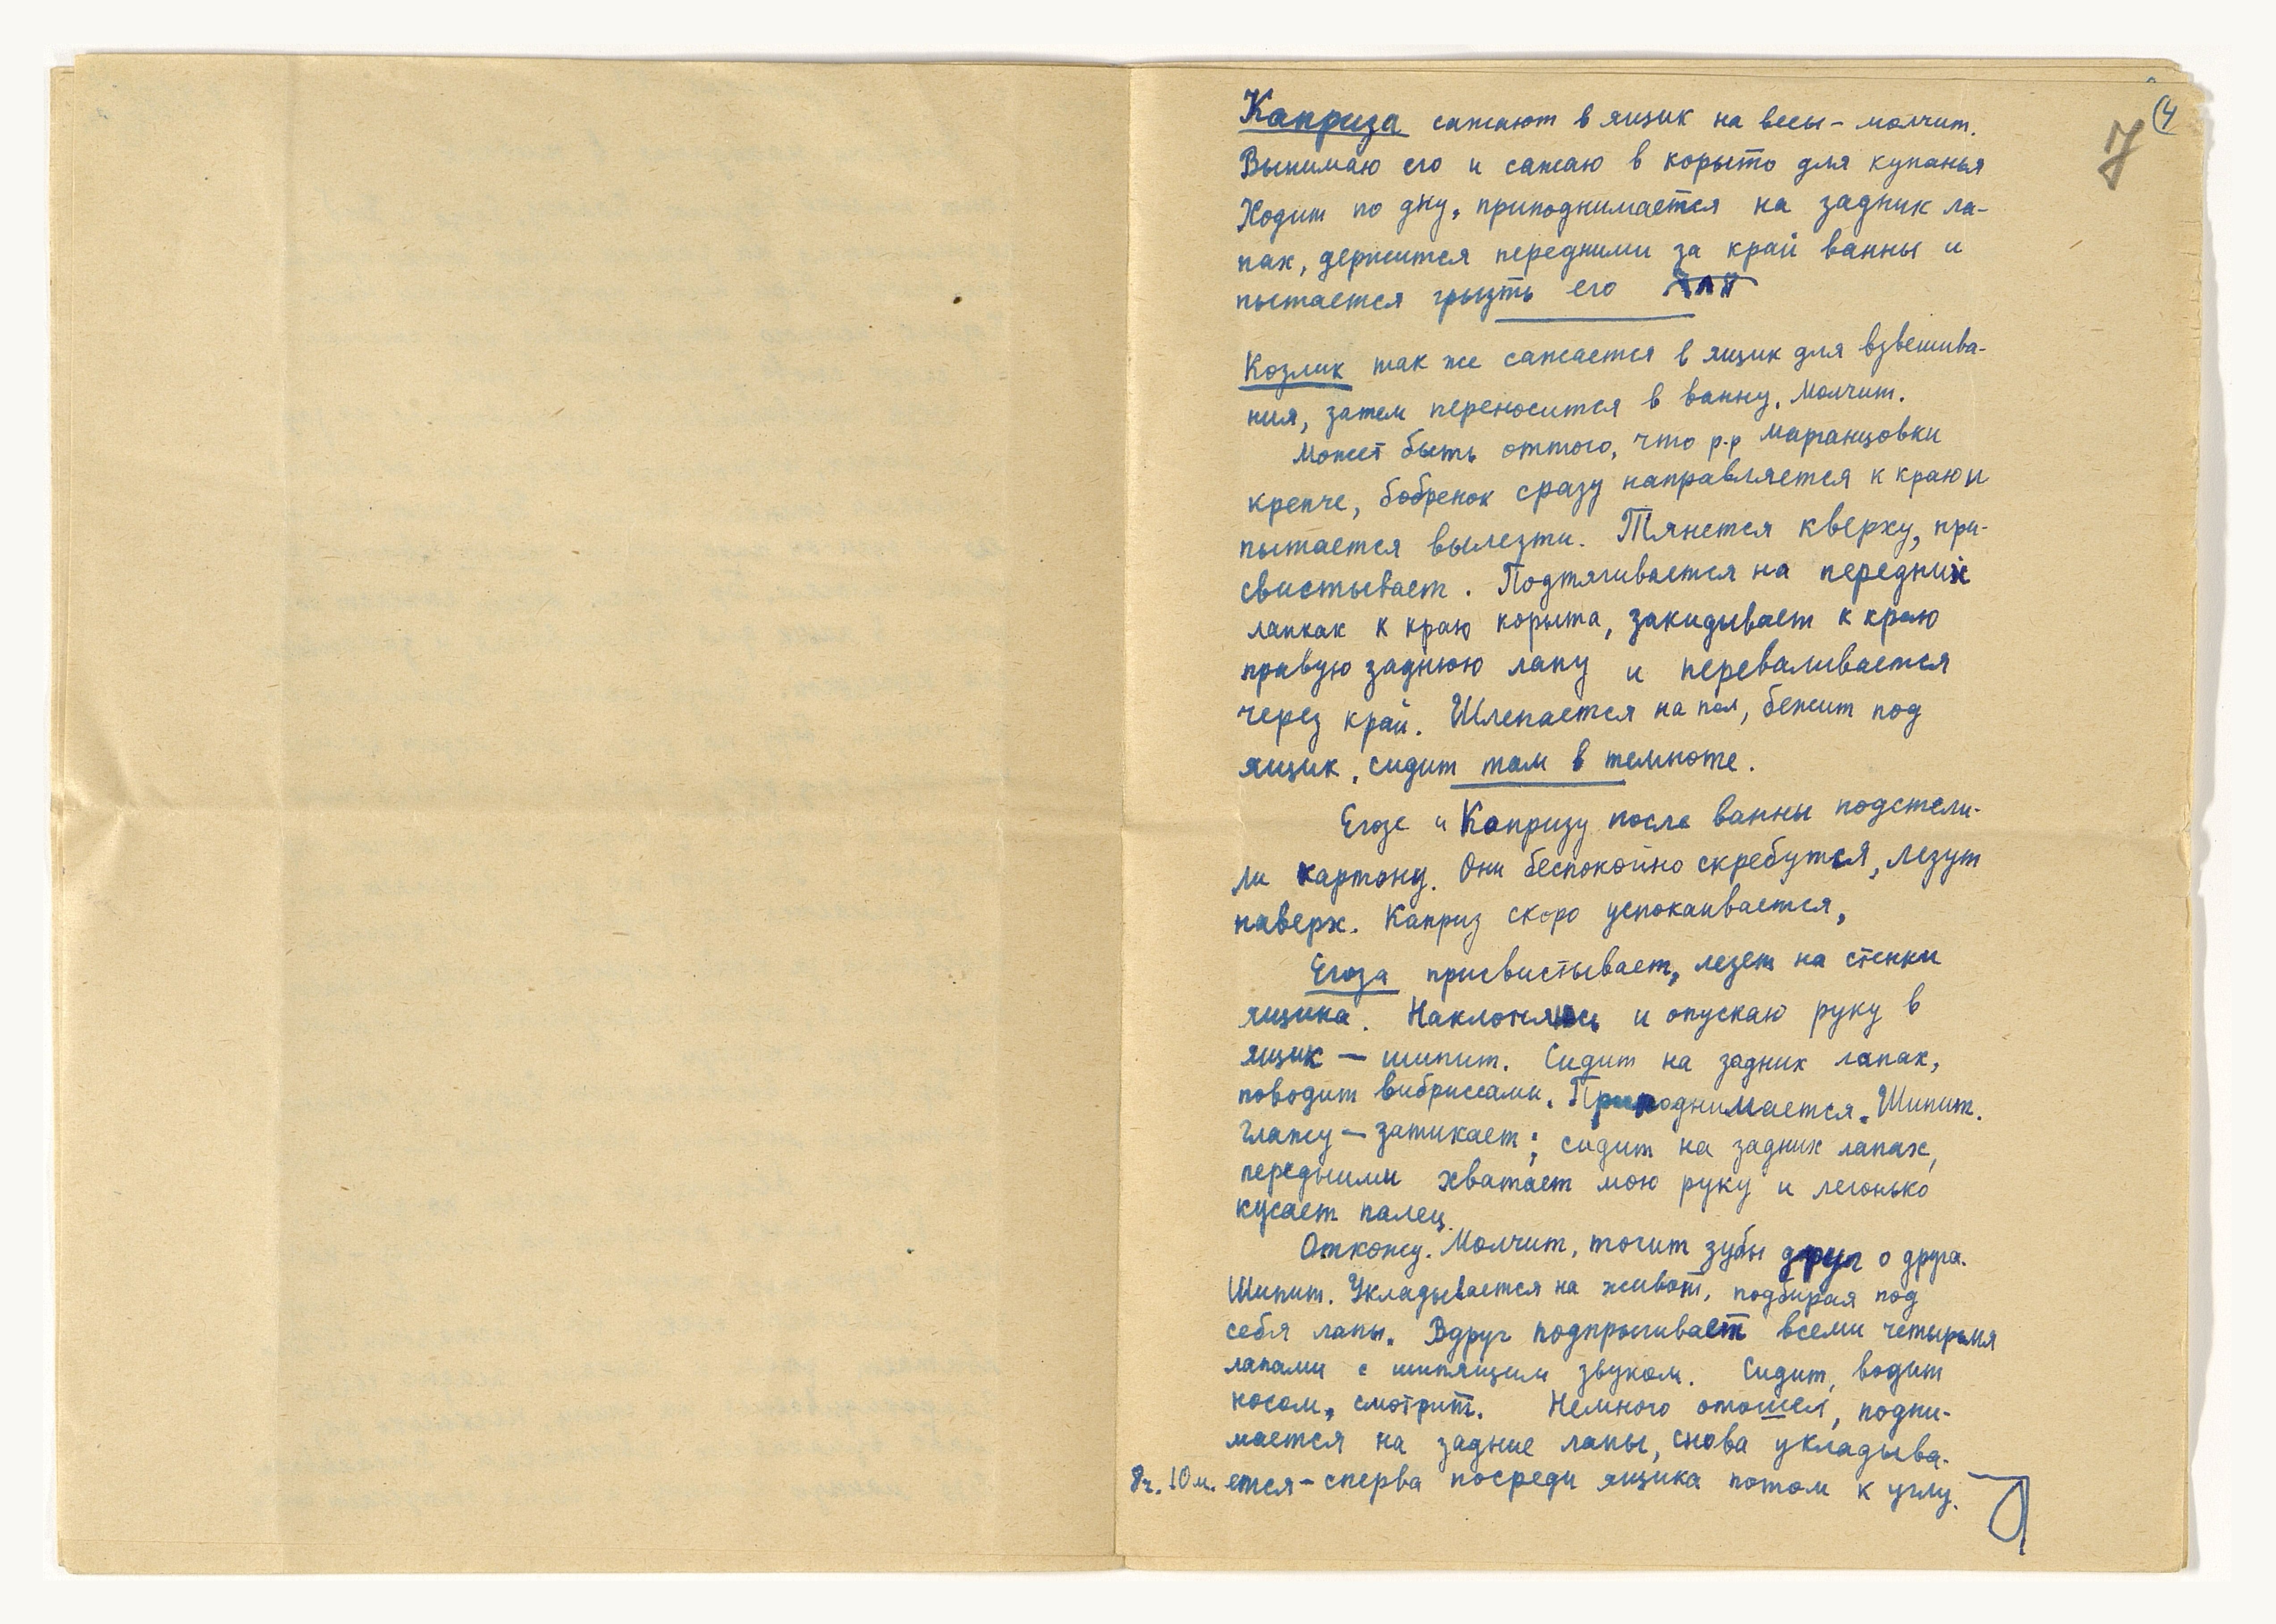 (4
7
Каприза сажают в ящик на весы – молчит.
Вынимаю его и сажаю в корыто для купанья
Ходит по дну, приподнимается на задних ла-
пах, держится передними за край ванны и
пытается грызть его
Козлик так же сажается в ящик для взвешива-
ния, затем переносится в ванну. Молчит.
Может быть оттого, что р-р марганцовки
крепче, бобренок сразу направляется к краю и
пытается вылезти. Тянется кверху, при-
свистывает. Подтягивается на передних
лапках к краю корыта, закидывает к краю
правую заднюю лапу и переваливается
через край. Шлепается на пол, бежит под
ящик, сидит там в темноте.
Егозе и Капризу после ванны подстели-
ли картону. Они беспокойно скребутся, лезут
наверх. Каприз скоро успокаивается,
Егоза присвистывает, лезет на стенки
ящика. Наклоняюсь и опускаю руку в
ящик – шипит. Сидит на задних лапах,
поводит вибриссами. Приподнимается. Шипит.
Глажу – затихает; сидит на задних лапах,
передними хватает мою руку и легонько
кусает палец.
Отхожу. Молчит, точит зубы друг о друга.
Шипит. Укладывается на живот, подбирая под
себя лапы. Вдруг подпрыгивает всеми четырьмя
лапами с шипящим звуком. Сидит, водит
носом, смотрит. Немного отошел, подни-
мается на задние лапы, снова укладыва-
8ч. 10м. ется – сперва посреди ящика потом к углу.